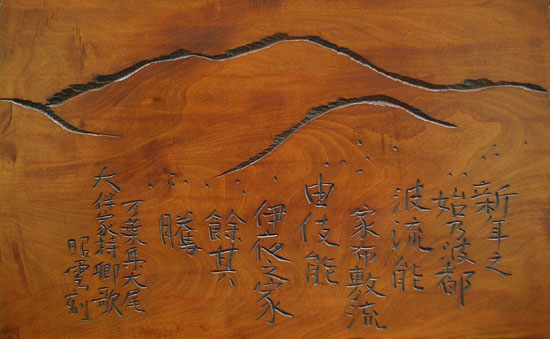 新年之
始乃波都
波流能
家布敷流
由伎能
伊夜之家
餘其
騰
万葉集大尾
大伴家持卿歌
昭雲刻